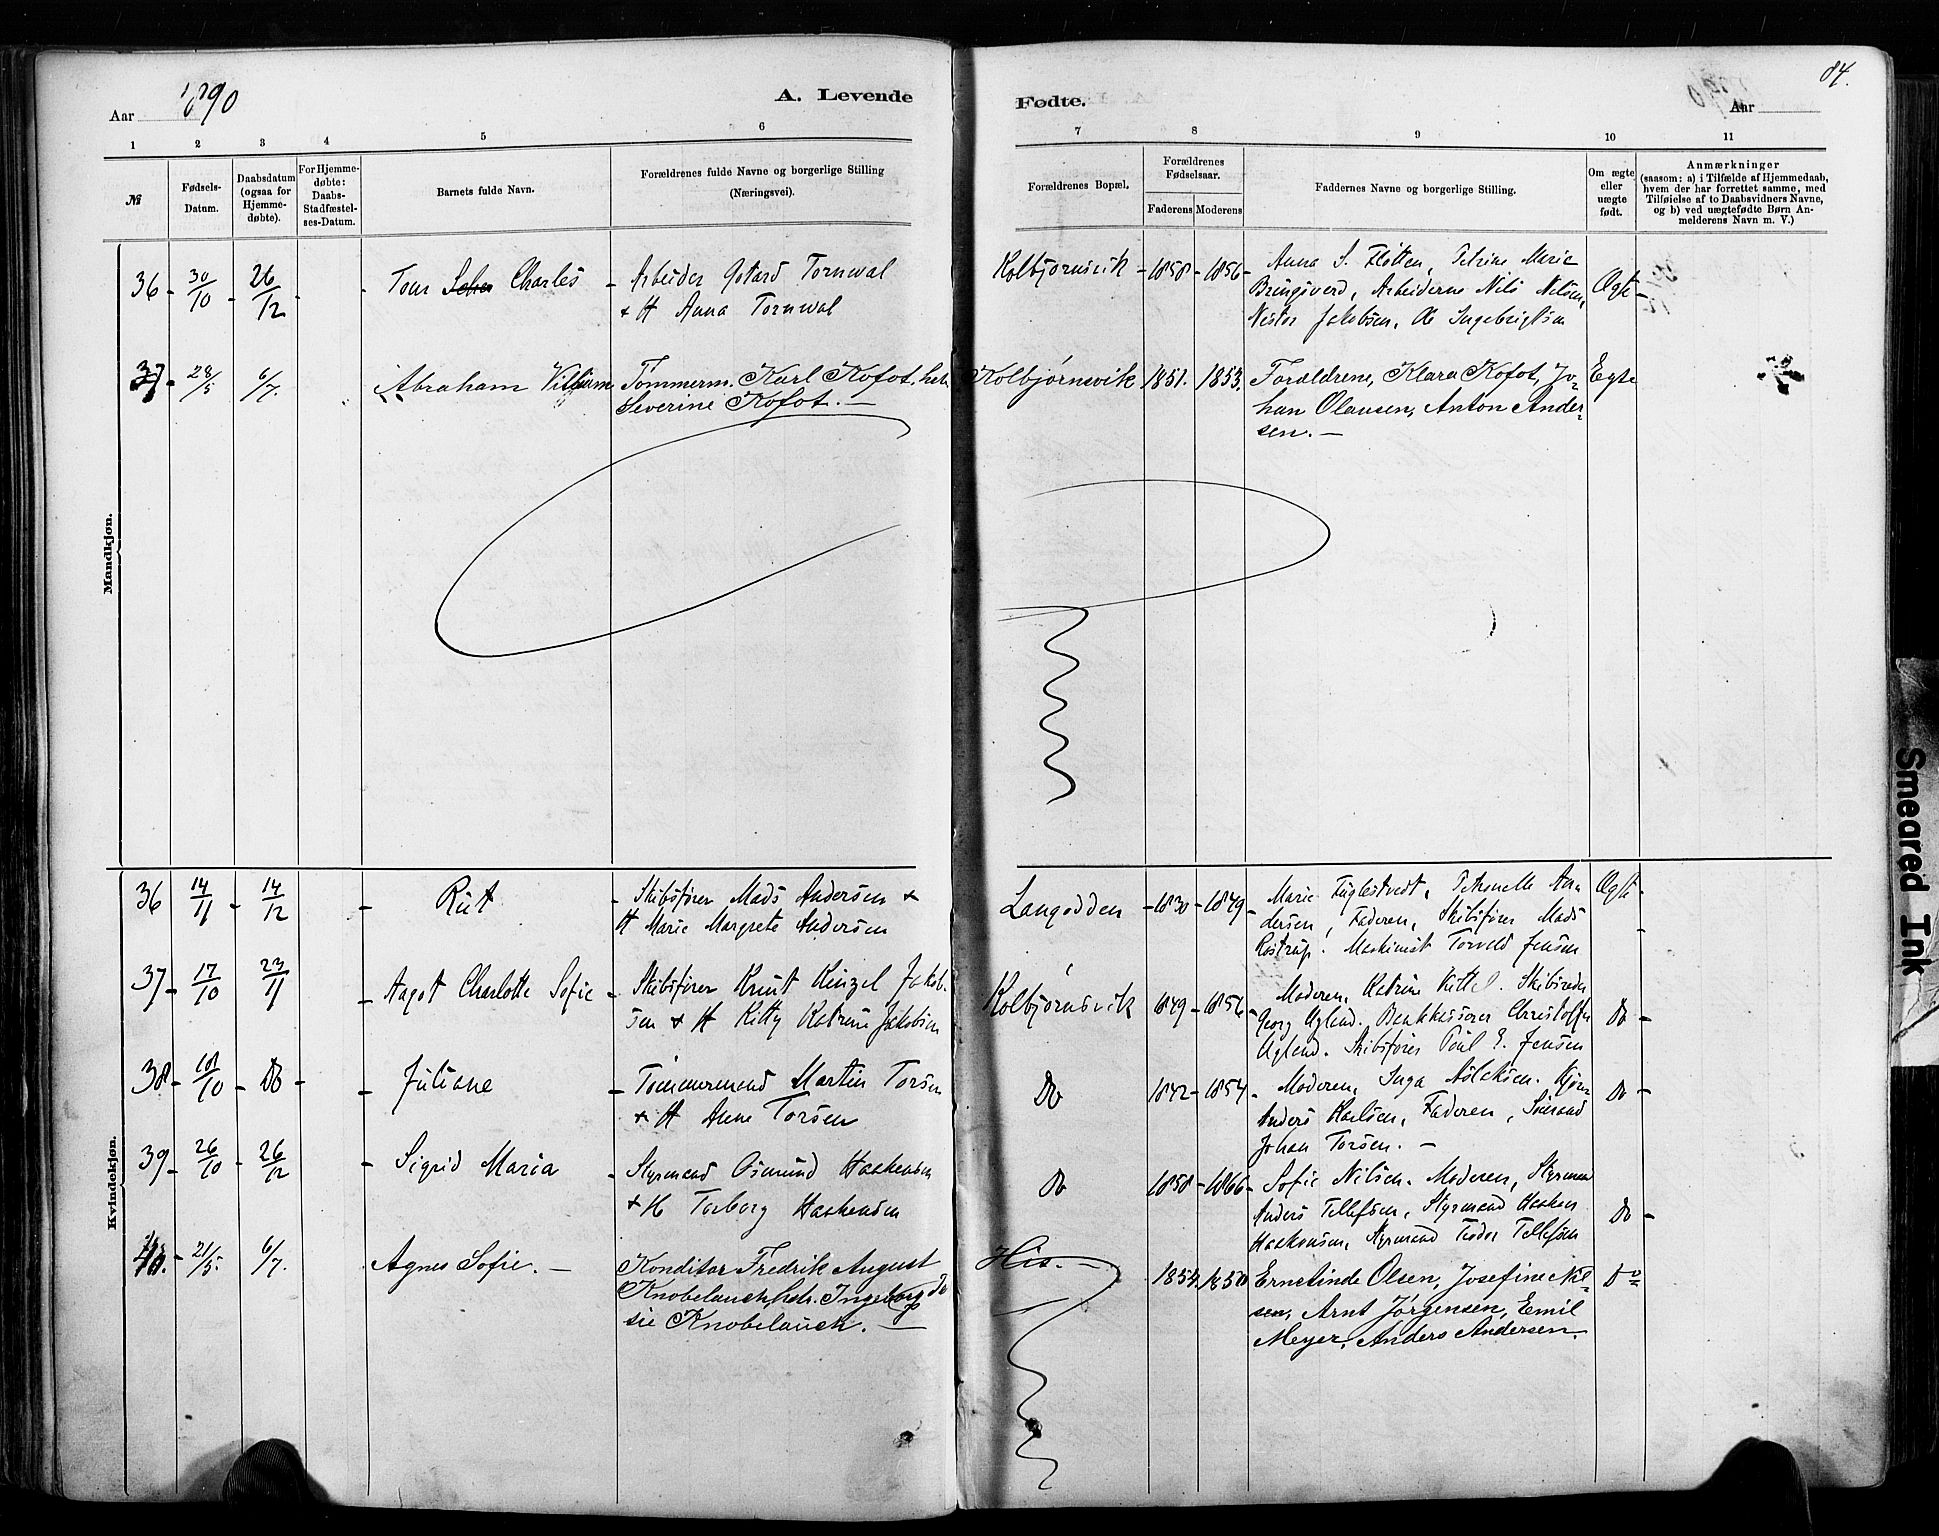 84.
Aar 1890
A. Levende Fødte.
Aar
1 2 3 4 5 6 7 8 9 10 11
№
Fødsels-
Datum.
Daabsdatum
(ogsaa for
Hjemme-
døbte).
For Hjemme-
døbte:
Daabs-
Stadfæstel-
ses-Datum.
Barnets fulde Navn.
Forældrenes fulde Navne og borgerlige Stilling
(Næringsvei).
Forældrenes Bopæl.
Forældrenes
Fødselsaar.
Faderens Moderens
Faddernes Navne og borgerlige Stilling.
Om ægte
eller
uægte
født.
Anmærkninger
(saasom: a) i Tilfælde af Hjemmedaab,
hvem der har forrettet samme, med
Tilføielse af to Daabsvidners Navne,
og b) ved uægtefødte Børn An-
melderens Navn m. V.)
Mandkjøn.
36 - 30/10 - 26/12 - - Tom Charles - Arbeider Gotard Tornwal
+ H Anna Tornwal
Kolbjørnsvik - 1858 - 1856 - Anna S. Fløtten, Petrine Marie
Bringsverd, Arbeiderne Nils Nilsen,
Nestor Jakobsen, Ole Ingebrigtsen
Ægte -
37 - 28/5 6/7. Abraham Vilhelm Tømmerm. Karl Kofot, hstr.
Severine Kofot. -
Kolbjørnsvik 1851. 1853. Forældrene, Klara Kofot, Jo-
han Olausen, Anton Ander-
sen. -
Egte
Kvindekjøn.
36 14/11 - 14/12 - Rut - Skibsfører Mads Andersen +
H Marie Margrete Andersen
Langodden - 1830 - 1849 - Marie Fuglestvedt, Petronelle An-
dersen, Faderen, Skibsfører Mads
Rostrup. Maskinist Torvald Jensen
Ægte -
37 - 17/10 23/11 - Aagot Charlotte Sofie - Skibsfører Knut Kinzel Jakob-
sen + H Kitty Katrine Jakobsen
Kolbjørnsvik 1849 - 1856 - Moderen, Katrine Kittel. Skibsreder
Georg Ugland. Bankkasserer Christoffer
Ugland. Skibsfører Poul E. Jensen
Do -
38 - 18/10 - Do - - Juliane - Tømmermand Martin Torsen
+ H Anne Torsen
Do 1842 - 1854 - Moderen, Inga Aslaksen.
Anders Karlsen, Faderen, Sømand
Johan Torsen. -
Do -
39 - 26/10 - 26/12 - Sigrid Maria - Styrmand Osmund Haakensen
+ H Torborg Haakensen
Do 1858 - 1866 - Sofie Nilsen. Moderen, Styrmand
Anders Tellefsen, Styrmand Haaken
Haakensen, Styrmand Teodor Tellefsen
Do -
40. - 21/5 6/7. Agnes Sofie. - Konditor Fredrik August
Knobelauch, hstr. Ingeborg Jo-
sie Knobelauch. -
His. - 1854. 1850 Ernetinde Olsen, Josefine Nil-
sen, Arnt Jørgensen, Emil
Meyer, Anders Andersen.
Do
Smeared Ink